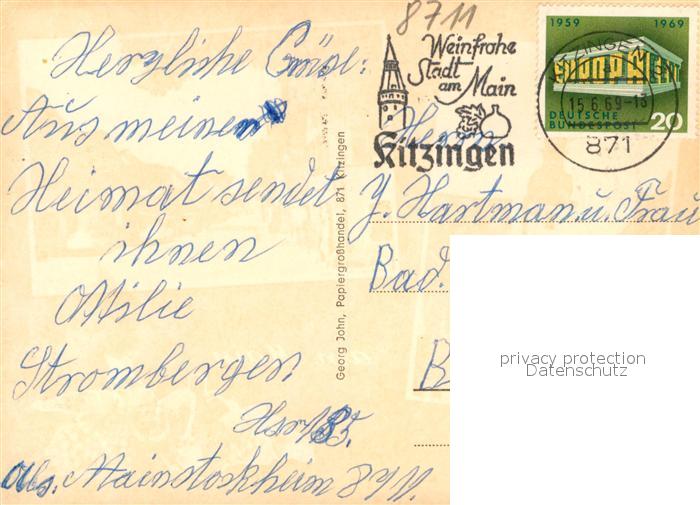 8711
1959 1969
Weinfrohe
Stadt
am Main
Kitzingen
KITZINGEN
15.6.69-18
871
DEUTSCHE
BUNDESPOST 20
Herzliche Grüse:
Aus meinen
Heimat sendet
ihnen
Ottilie
Strombergen
Hsr 185.
aus. Mainstockheim 8711.
Georg John, Papiergroßhandel, 871 Kitzingen
Herrn
J. Hartman. u. Frau
Bad.
B
privacy protection
Datenschutz